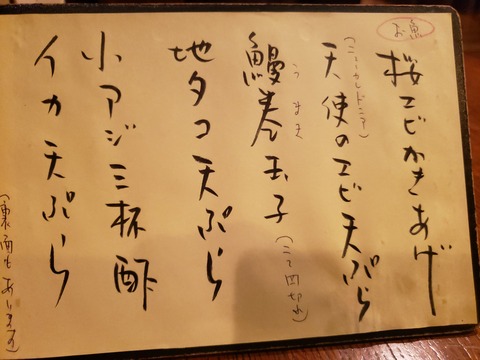 お魚
桜エビかきあげ
(ニューカレドニア)
天使のエビ天ぷら
うまき
鰻巻玉子(こて四切れ)
地タコ天ぷら
小アジ三杯酢
イカ天ぷら
(裏面もあります)